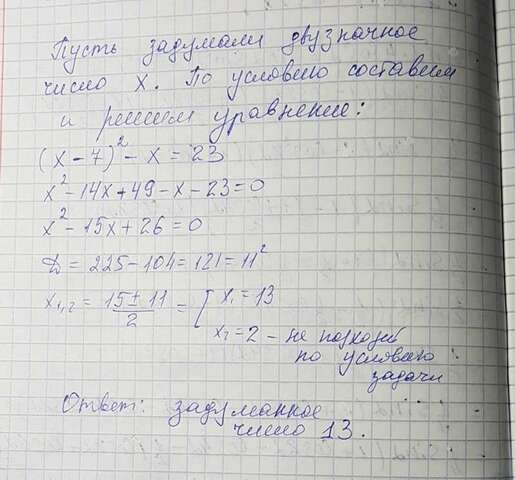 Пусть задумали двузначное
число x. По условию составим
и решим уравнение:
(x - 7)² - x = 23
x² - 14x + 49 - x - 23 = 0
x² - 15x + 26 = 0
D = 225 - 104 = 121 = 11²
x₁,₂ = (15 ± 11)/2 = [ x₁ = 13
x₂ = 2 - не подходит
по условию
задачи
Ответ: задуманное
число 13.